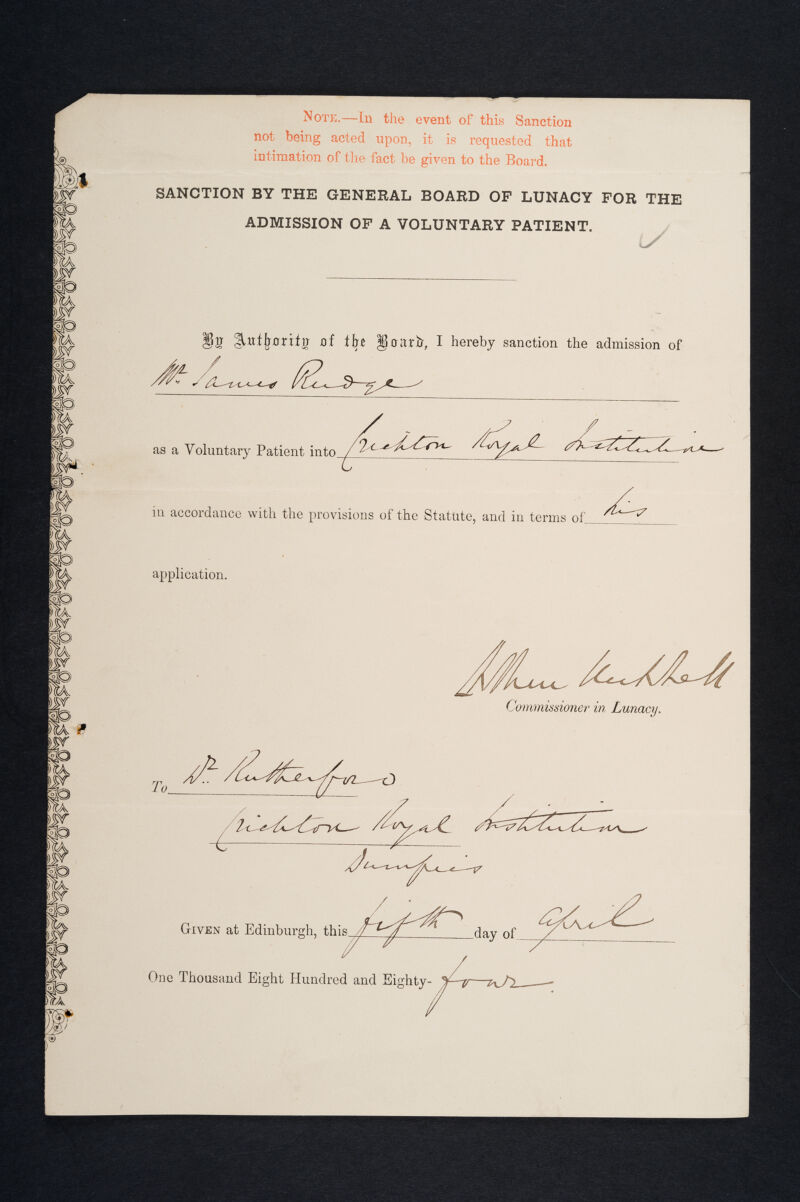 NOTE.—In the event of this Sanction
not being acted upon, it is requested that
intimation of the fact be given to the Board.
SANCTION BY THE GENERAL BOARD OF LUNACY FOR THE
ADMISSION OF A VOLUNTARY PATIENT.
By Authority of the Board, I hereby sanction the admission of
Mr. James Rudge
as a Voluntary Patient into Crichton Royal Institution
in accordance with the provisions of the Statute, and in terms of his
application.
Arthur Mitchell
Commissioner in Lunacy.
To Dr. Rutherford
Crichton Royal Institution
Dumfries
GIVEN at Edinburgh, this fifth day of April
One Thousand Eight Hundred and Eighty-four.